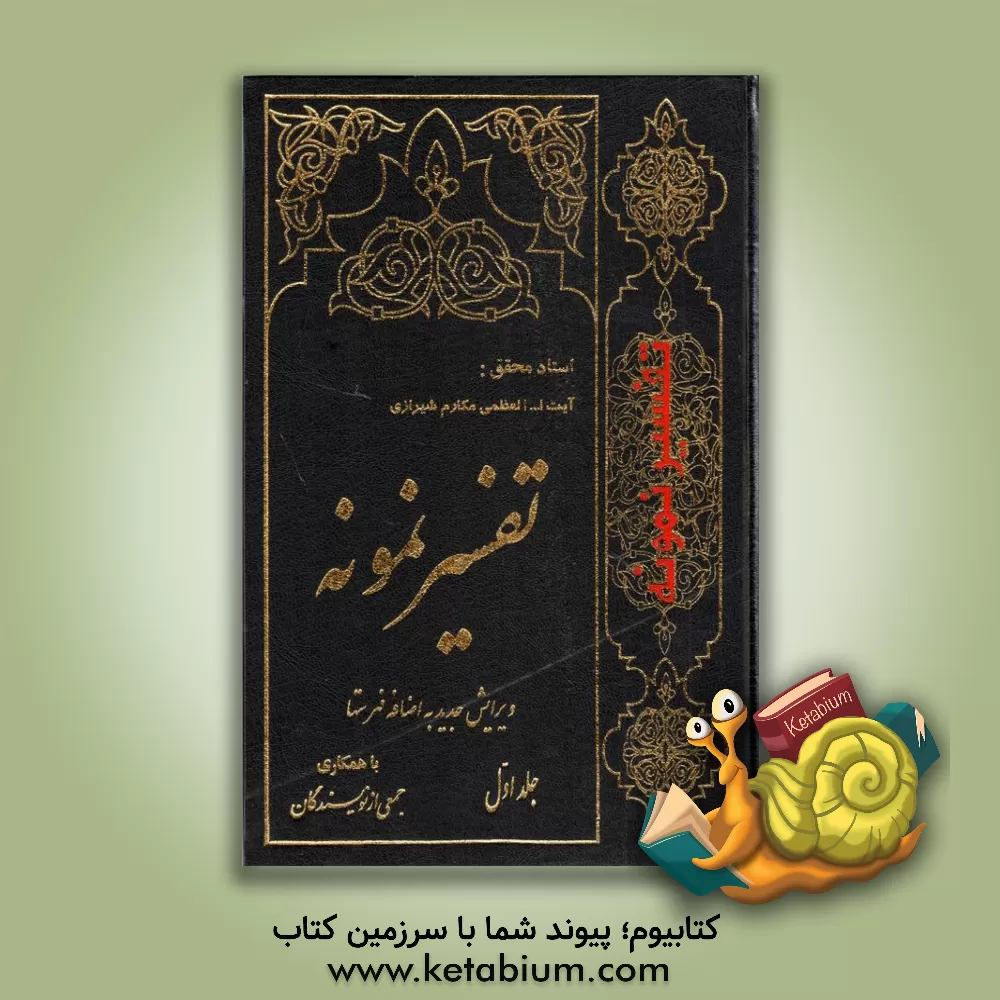 استاد محقق :
آیت ا... العظمی مکارم شیرازی
تفسیر نمونه
ویرایش جدید به اضافه فهرستها
با همکاری
جمعی از نویسندگان
جلد اوّل
تفسیر نمونه
Ketabium
کتابیوم؛ پیوند شما با سرزمین کتاب
www.ketabium.com